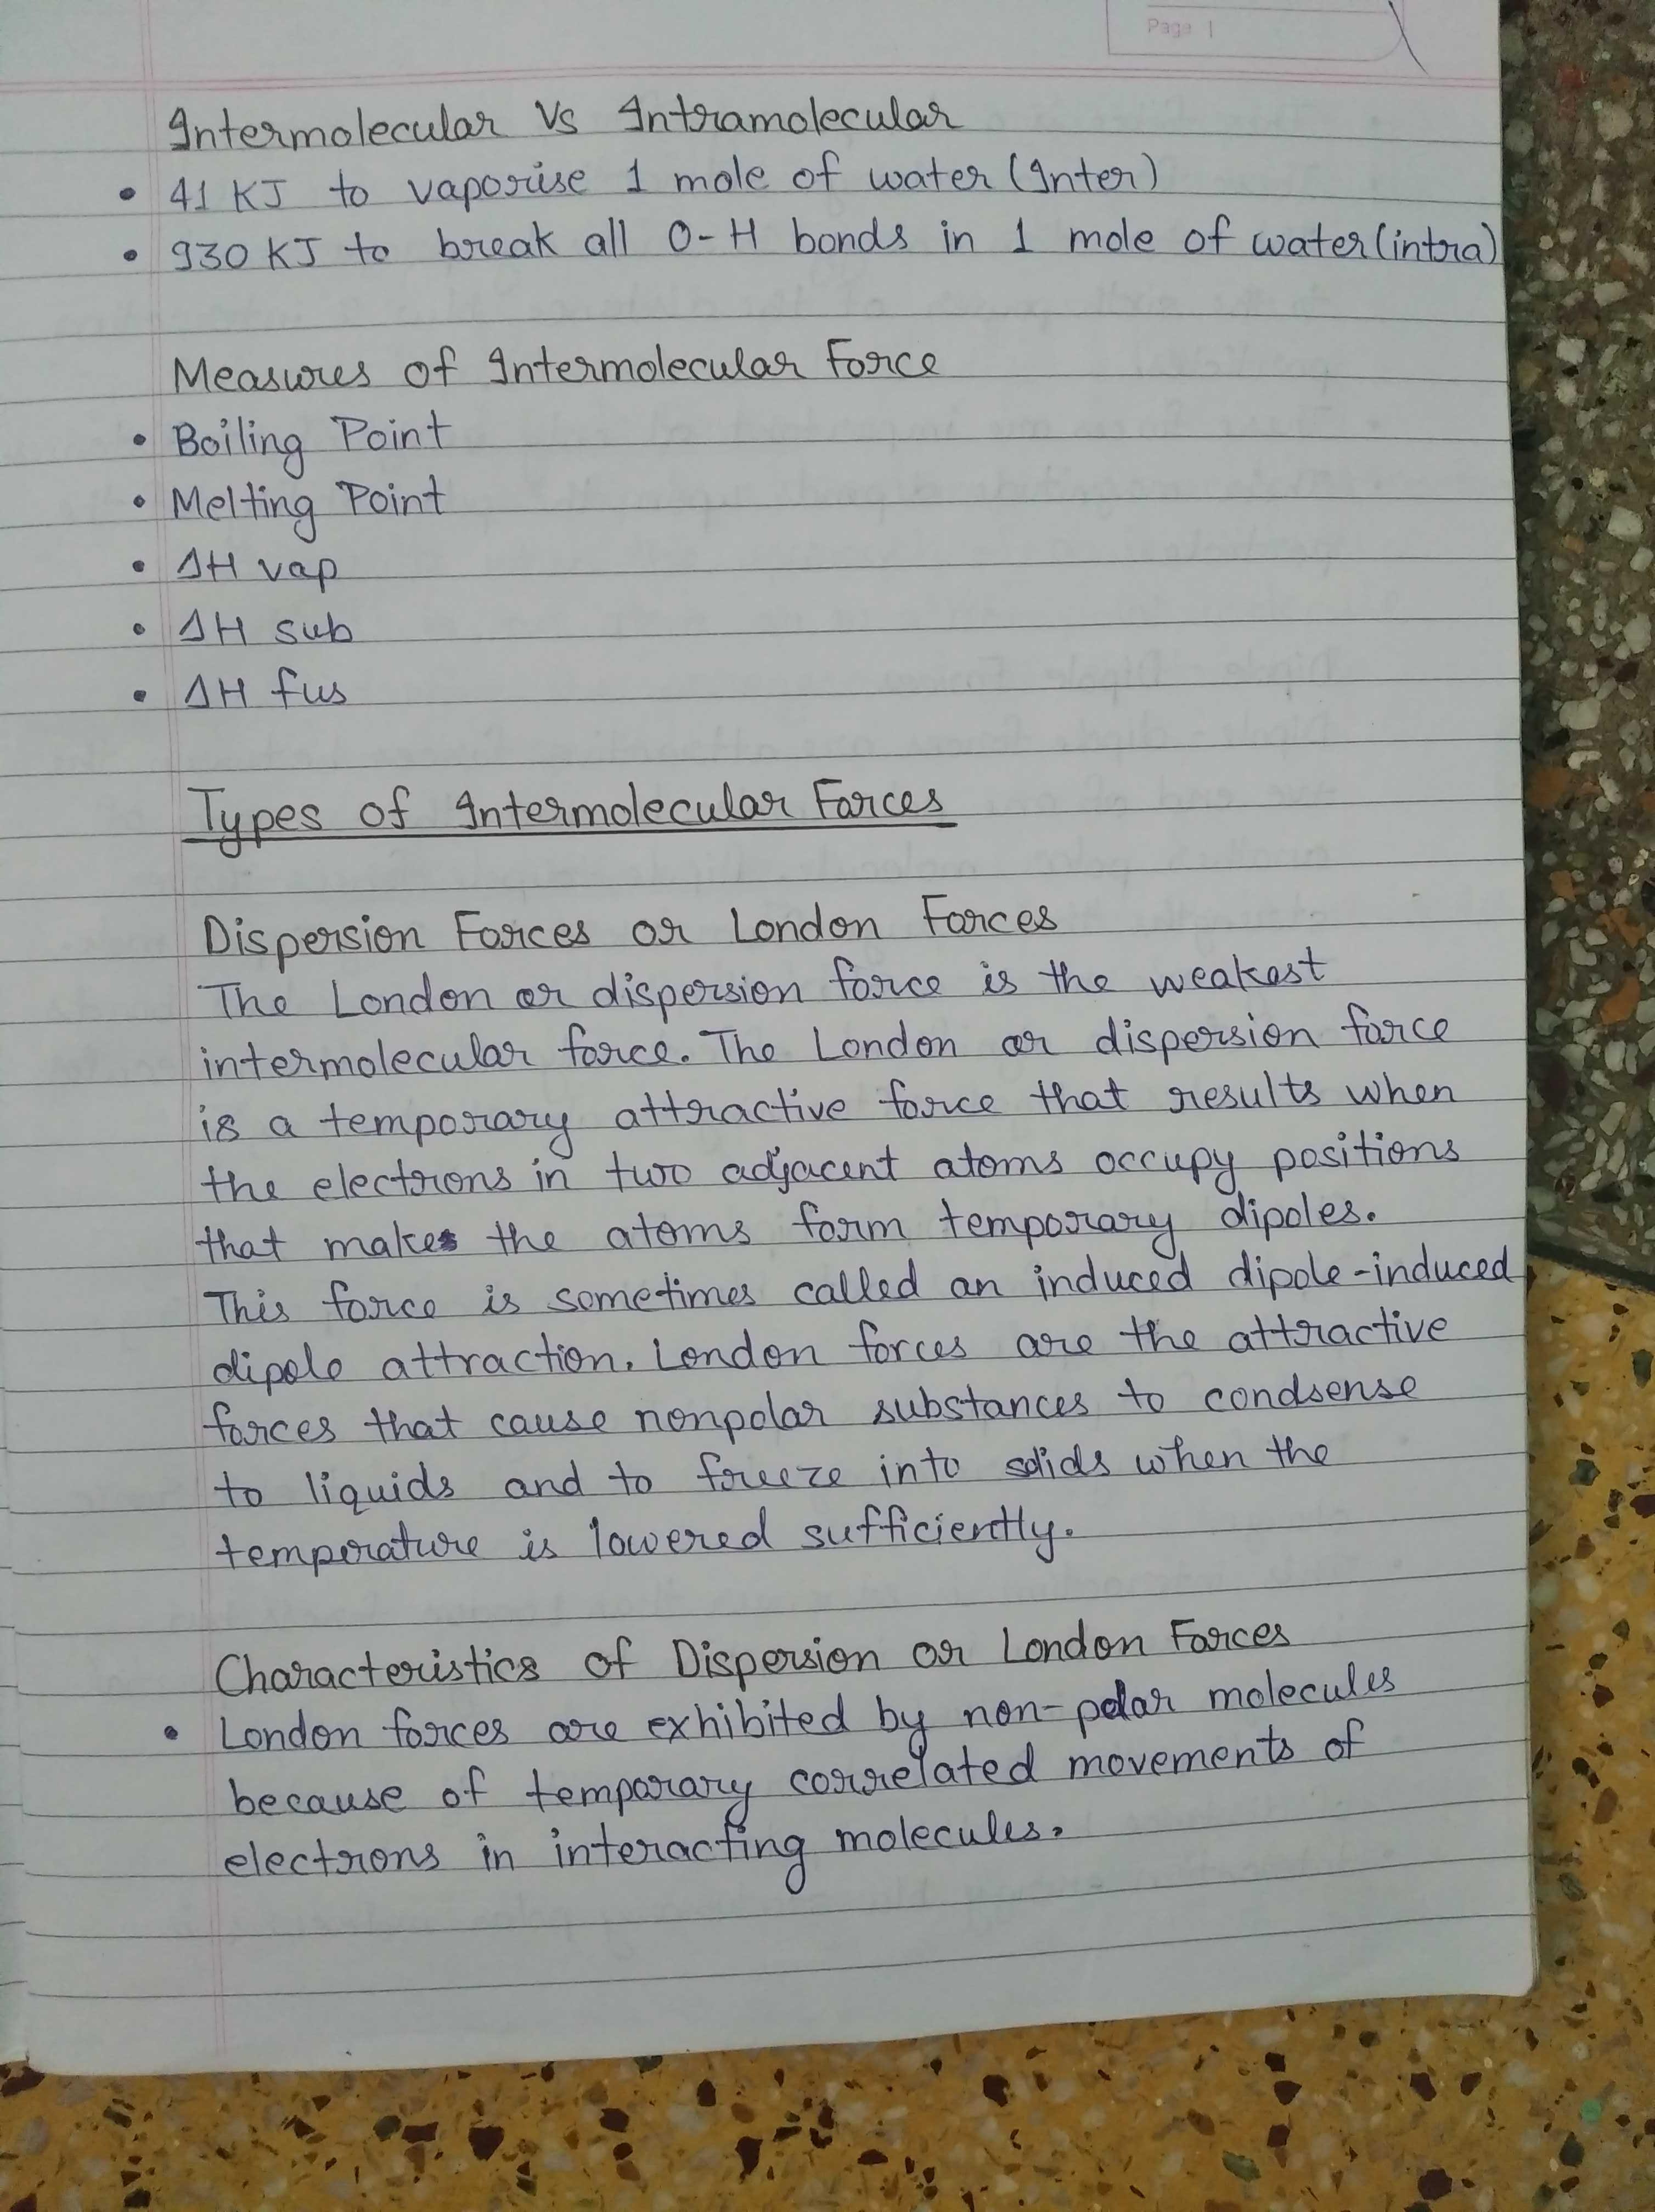 Page |
Intermolecular Vs Intramolecular
• 41 KJ to vaporise 1 mole of water (Inter)
• 930 KJ to break all O-H bonds in 1 mole of water (intra)
Measures of Intermolecular Force
• Boiling Point
• Melting Point
• ΔH vap
• ΔH sub
• ΔH fus
Types of Intermolecular Forces
Dispersion Forces or London Forces
The London or dispersion force is the weakest
intermolecular force. The London or dispersion force
is a temporary attractive force that results when
the electrons in two adjacent atoms occupy positions
that makes the atoms form temporary dipoles.
This force is sometimes called an induced dipole-induced
dipole attraction. London forces are the attractive
forces that cause nonpolar substances to condsense
to liquids and to freeze into solids when the
temperature is lowered sufficiently.
Characteristics of Dispersion or London Forces
• London forces are exhibited by non-polar molecules
because of temporary correlated movements of
electrons in interacting molecules.